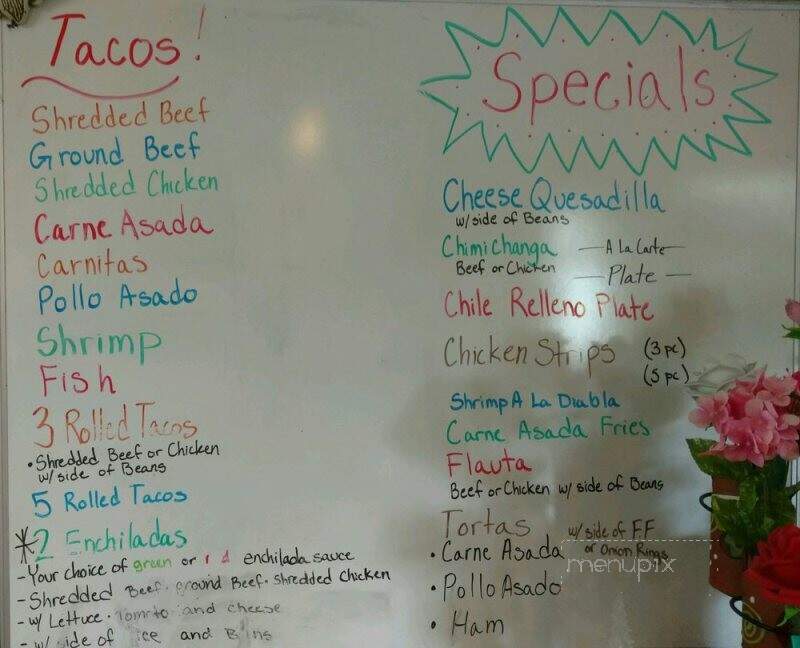 Tacos!
Shredded Beef
Ground Beef
Shredded Chicken
Carne Asada
Carnitas
Pollo Asado
Shrimp
Fish
3 Rolled Tacos
• Shredded Beef or Chicken
w/ side of Beans
5 Rolled Tacos
*2 Enchiladas
- Your choice of green or r d enchilada sauce
- Shredded Beef • ground Beef • Shredded Chicken
- w/ Lettuce • Tomato and cheese
- w/ side of ice and B ns
Specials
Cheese Quesadilla
w/ side of Beans
Chimi Changa — A La Carte —
Beef or Chicken — Plate —
Chile Relleno Plate
Chicken Strips (3 pc)
(5 pc)
Shrimp A La Diabla
Carne Asada Fries
Flauta
Beef or Chicken w/ side of Beans
Tortas w/ side of F.F
or Onion Rings
• Carne Asada
• Pollo Asado
• Ham
menupix